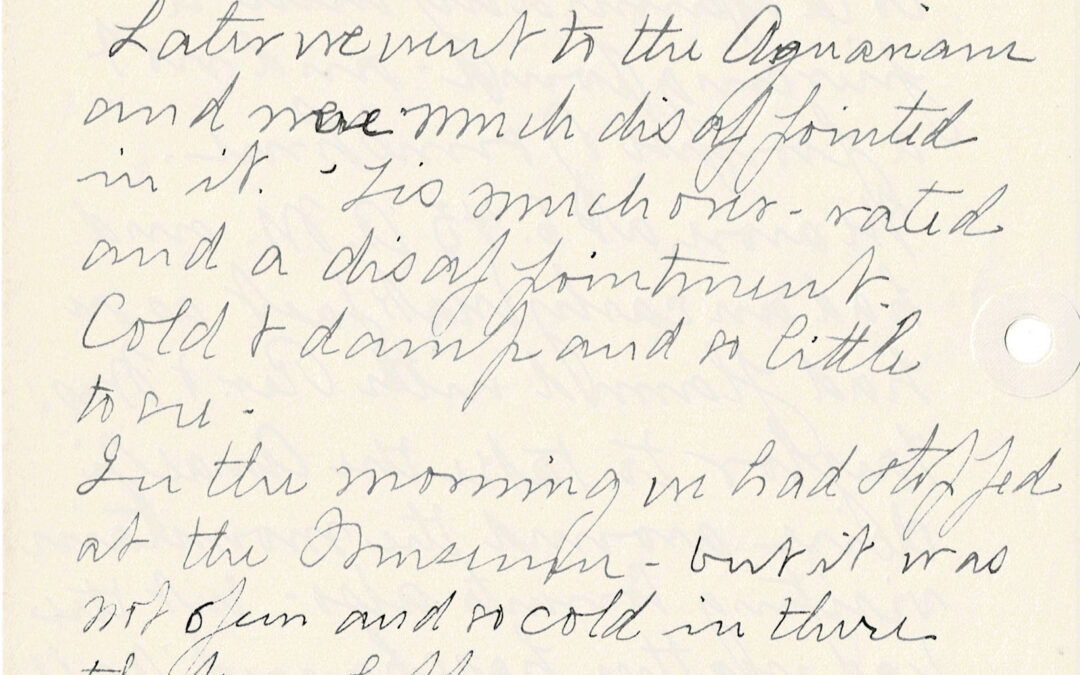 Later we went to the Aquarium
and were much disappointed
in it. 'Tis much over-rated
and a disappointment.
Cold & damp and so little
to see -
In the morning we had stopped
at the Museum - but it was
not open and so cold in there